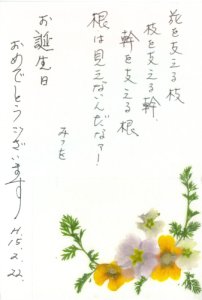 花を支える枝
枝を支える幹
幹を支える根
根は見えねんだなあー
みつを
お誕生日
おめでとうございます
H.15.2.22.